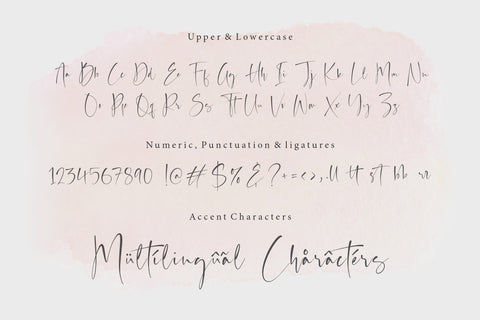 Upper & Lowercase
Aa Bb Cc Dd Ee Ff Gg Hh Ii Jj Kk Ll Mm Nn
Oo Pp Qq Rr Ss Tt Uu Vv Ww Xx Yy Zz
Numeric, Punctuation & ligatures
1234567890 !@#$%&?+=<>,. ll tt
Accent Characters
Mültílingûãl Chårâctérs